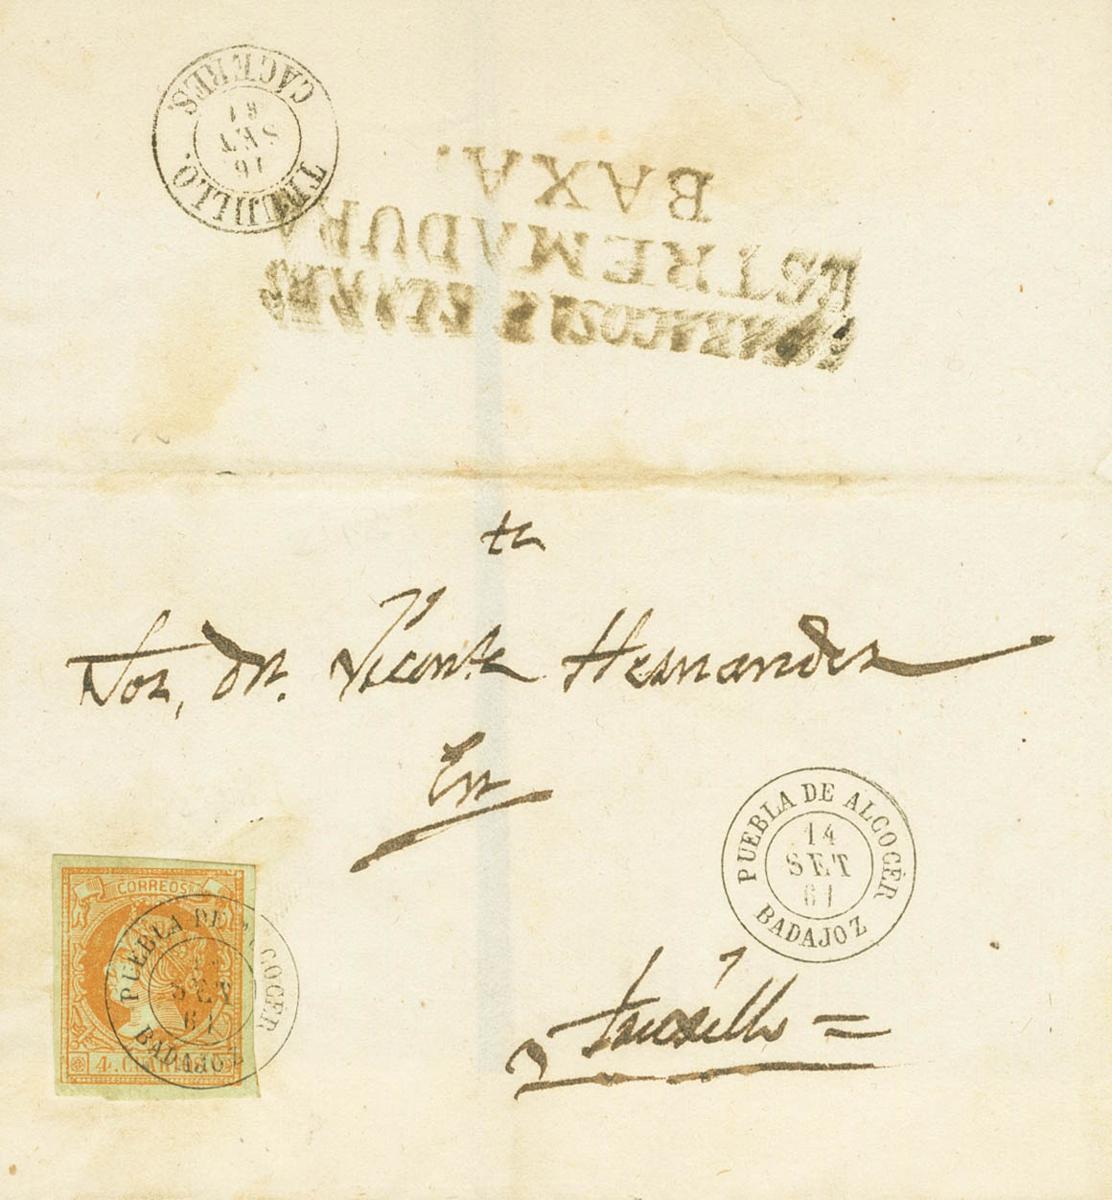 TRUJILLO.
16
SET
61
CACERES.
ESTREMADURA
BAXA.
Sor, dn. Vicente Hernandez
En
PUEBLA DE ALGOCER
14
SET
61
BADAJOZ
CORREOS
4. CUARTOS
PUEBLA DE ALGOCER
14
SET
61
BADAJOZ
Truxillo =